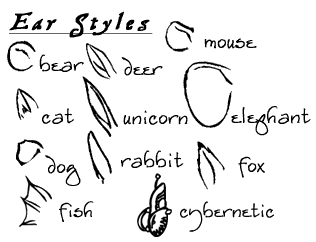 Ear Styles
mouse
bear deer
cat unicorn elephant
dog rabbit fox
fish cybernetic